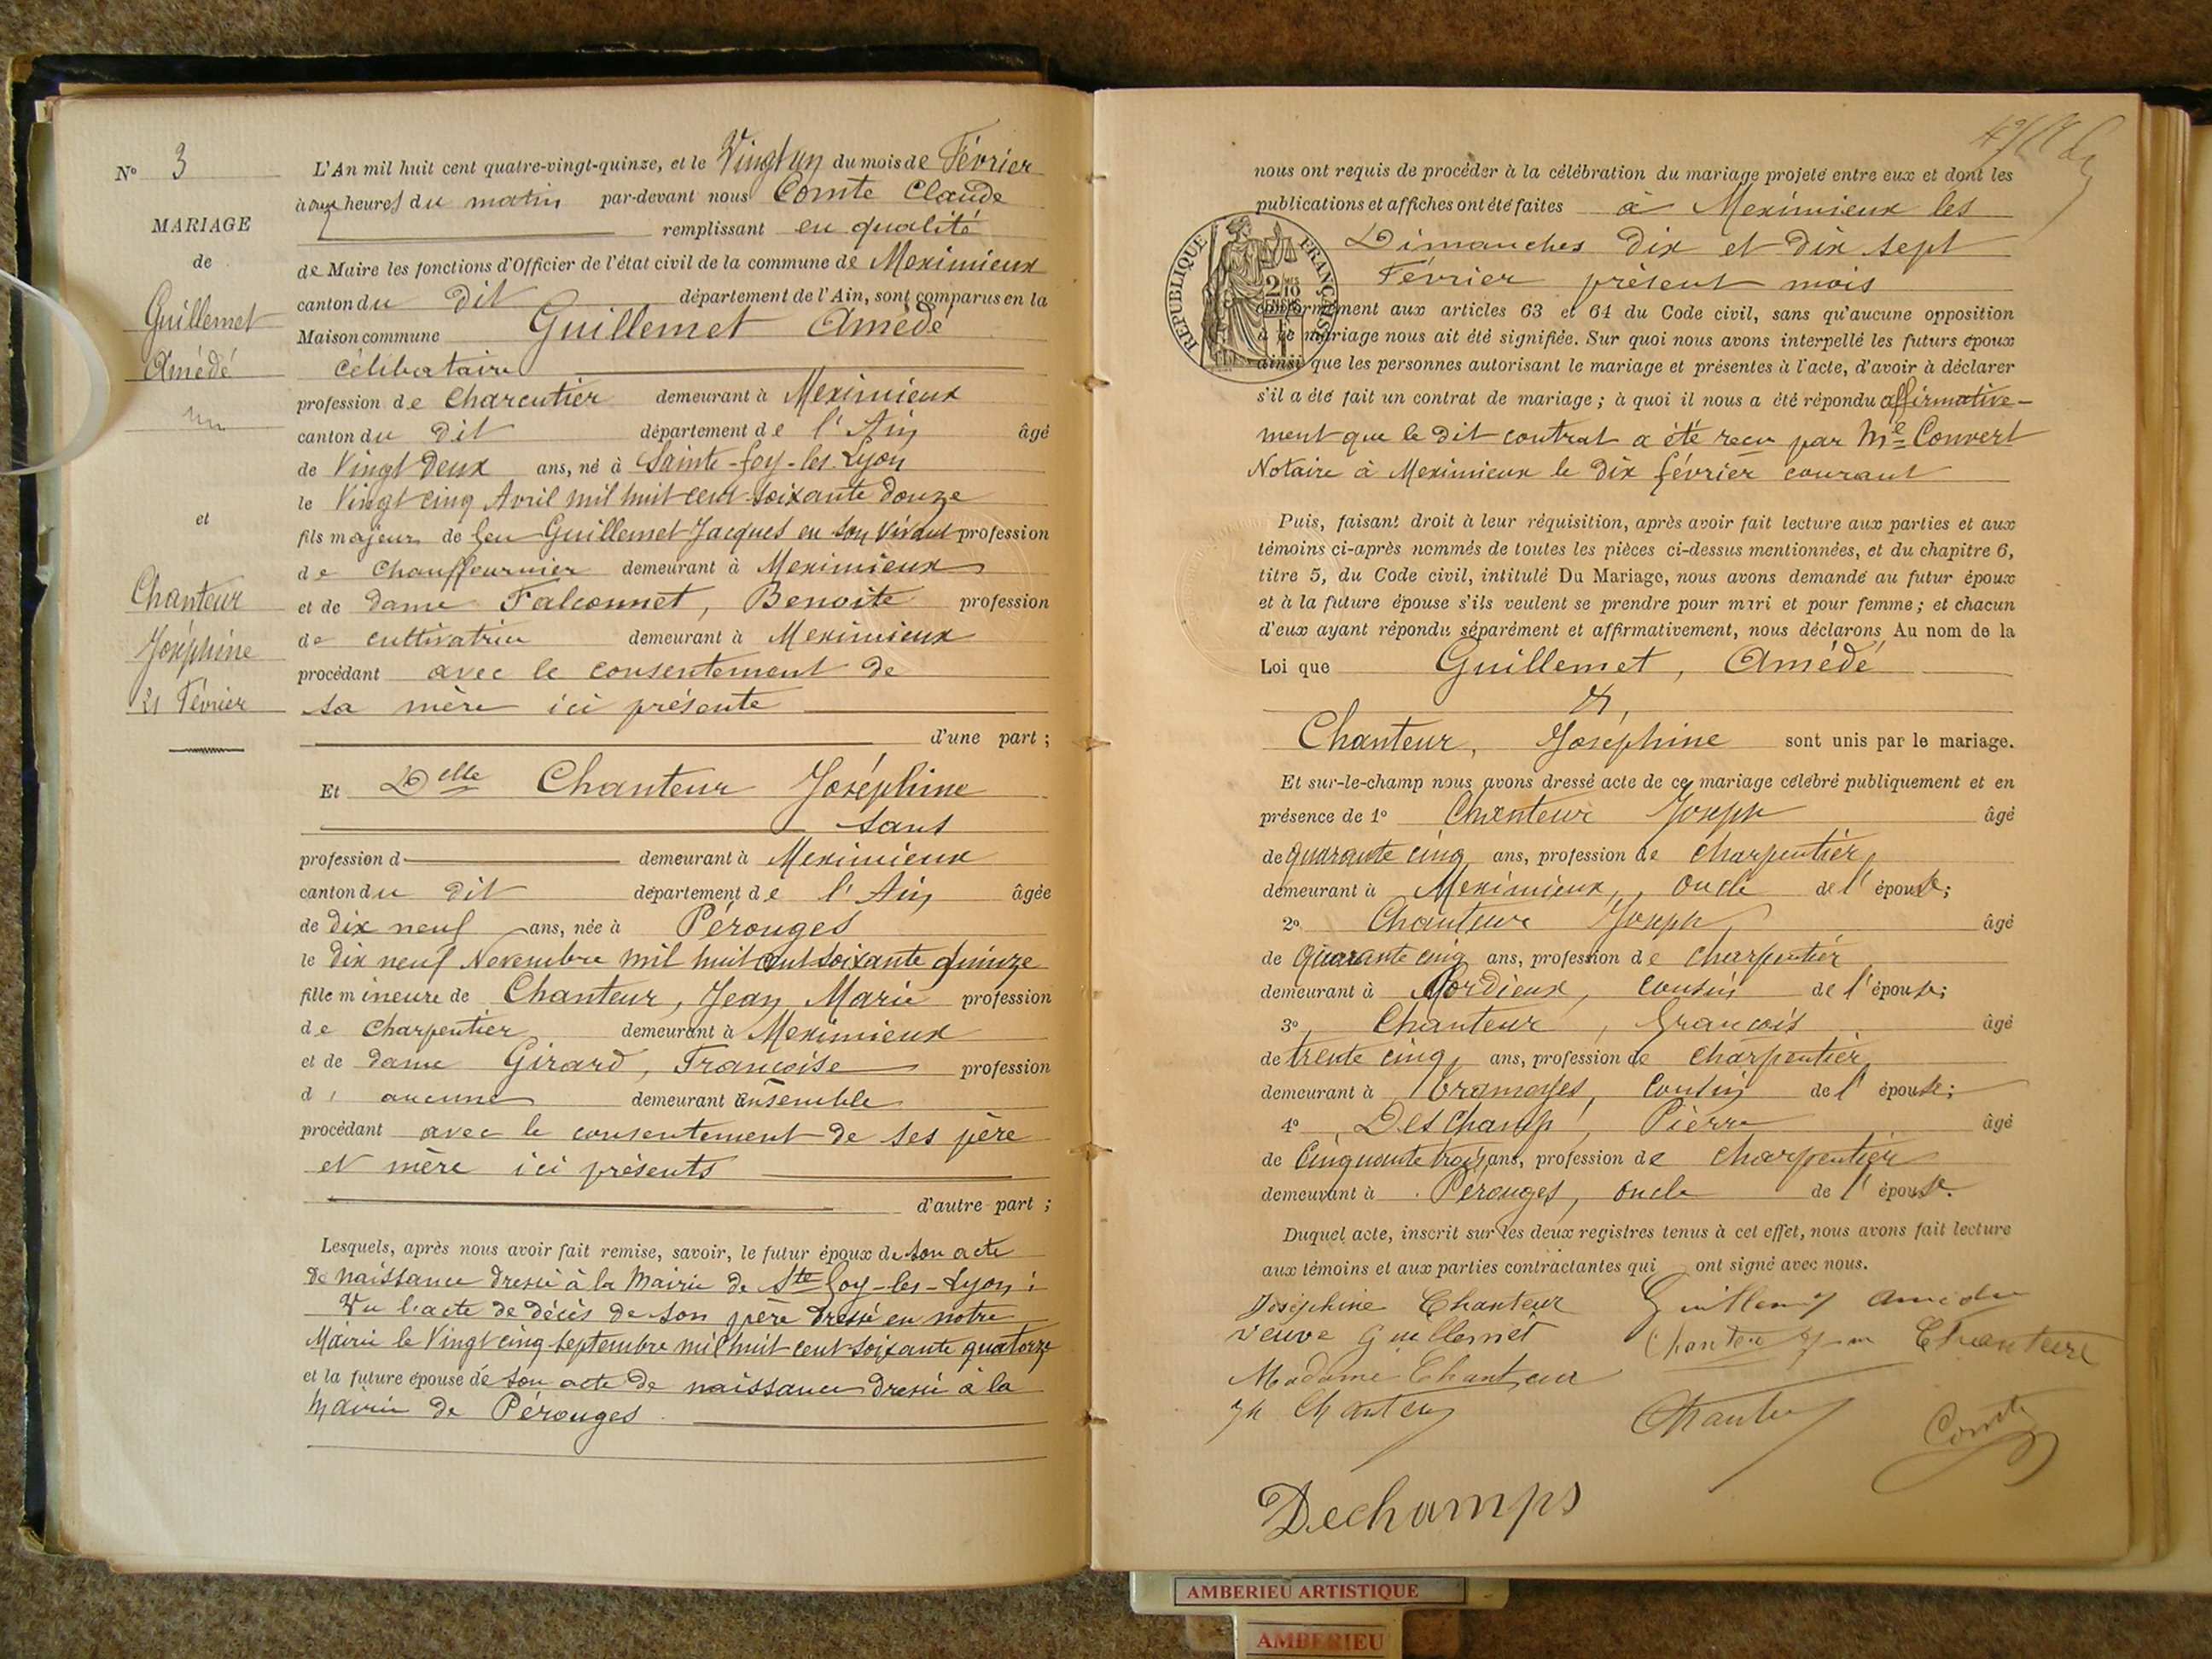 N° 3
MARIAGE
de
Guillemet
Amédé
et
Chanteur
Joséphine
21 Février
L'An mil huit cent quatre-vingt-quinze, et le Vingt un du mois de Février
à onze heures du matin par-devant nous Comte Claude
remplissant en qualité
de Maire les fonctions d'Officier de l'état civil de la commune de Meximieux
canton du dit département de l'Ain, sont comparus en la
Maison commune Guillemet Amédé
célibataire
profession de Charcutier demeurant à Meximieux
canton du dit département de l'Ain âgé
de Vingt Deux ans, né à Sainte-foy-les-Lyon
le Vingt cinq Avril mil huit cent soixante douze
fils majeur de feu Guillemet Jacques en son vivant profession
de Chauffournier demeurant à Meximieux
et de dame Falconnet, Benoite profession
de cultivatrice demeurant à Meximieux
procédant avec le consentement de
sa mère ici présente
d'une part ;
Et Delle Chanteur Joséphine
sans
profession d demeurant à Meximieux
canton du dit département de l'Ain âgée
de dix neuf ans, née à Pérouges
le dix neuf Novembre mil huit cent soixante quinze
fille mineure de Chanteur, Jean Marie profession
de Charpentier demeurant à Meximieux
et de dame Girard, Françoise profession
d' aucune demeurant ensemble
procédant avec le consentement de ses père
et mère ici présents
d'autre part ;
Lesquels, après nous avoir fait remise, savoir, le futur époux de son acte
de naissance dressé à la Mairie de Ste foy-les-Lyon ;
Vu l'acte de décès de son père dressé en notre
Mairie le Vingt cinq septembre mil huit cent soixante quatorze
et la future épouse de son acte de naissance dressé à la
Mairie de Pérouges
nous ont requis de procéder à la célébration du mariage projeté entre eux et dont les
publications et affiches ont été faites à Meximieux les
Dimanches dix et dix sept
Février présent mois
RÉPUBLIQUE FRANÇAISE
conformément aux articles 63 et 64 du Code civil, sans qu'aucune opposition
à ce mariage nous ait été signifiée. Sur quoi nous avons interpellé les futurs époux
ainsi que les personnes autorisant le mariage et présentes à l'acte, d'avoir à déclarer
s'il a été fait un contrat de mariage ; à quoi il nous a été répondu affirmative-
ment que le dit contrat a été reçu par Me Convert
Notaire à Meximieux le dix février courant
Puis, faisant droit à leur réquisition, après avoir fait lecture aux parties et aux
témoins ci-après nommés de toutes les pièces ci-dessus mentionnées, et du chapitre 6,
titre 5, du Code civil, intitulé Du Mariage, nous avons demandé au futur époux
et à la future épouse s'ils veulent se prendre pour mari et pour femme ; et chacun
d'eux ayant répondu séparément et affirmativement, nous déclarons Au nom de la
Loi que Guillemet, Amédé
&
Chanteur, Joséphine sont unis par le mariage.
Et sur-le-champ nous avons dressé acte de ce mariage célébré publiquement et en
présence de 1° Chanteur Joseph âgé
de quarante cinq ans, profession de charpentier,
demeurant à Meximieux, oncle de l'épouse ;
2° Chanteur Joseph âgé
de quarante cinq ans, profession de charpentier
demeurant à Mordieux, cousin de l'épouse ;
3° Chanteur, François âgé
de trente cinq ans, profession de charpentier
demeurant à Tramoyes, cousin de l'épouse ;
4° Deschamp, Pierre âgé
de cinquante trois ans, profession de charpentier
demeurant à Pérouges, oncle de l'épouse.
Duquel acte, inscrit sur les deux registres tenus à cet effet, nous avons fait lecture
aux témoins et aux parties contractantes qui ont signé avec nous.
Joséphine Chanteur Guillemet Amédée
veuve Guillemet Chanteur Chanteur
Madame Chanteur
Jh Chanteur Chanteur Comte
Dechamps
AMBERIEU ARTISTIQUE
AMBERIEU